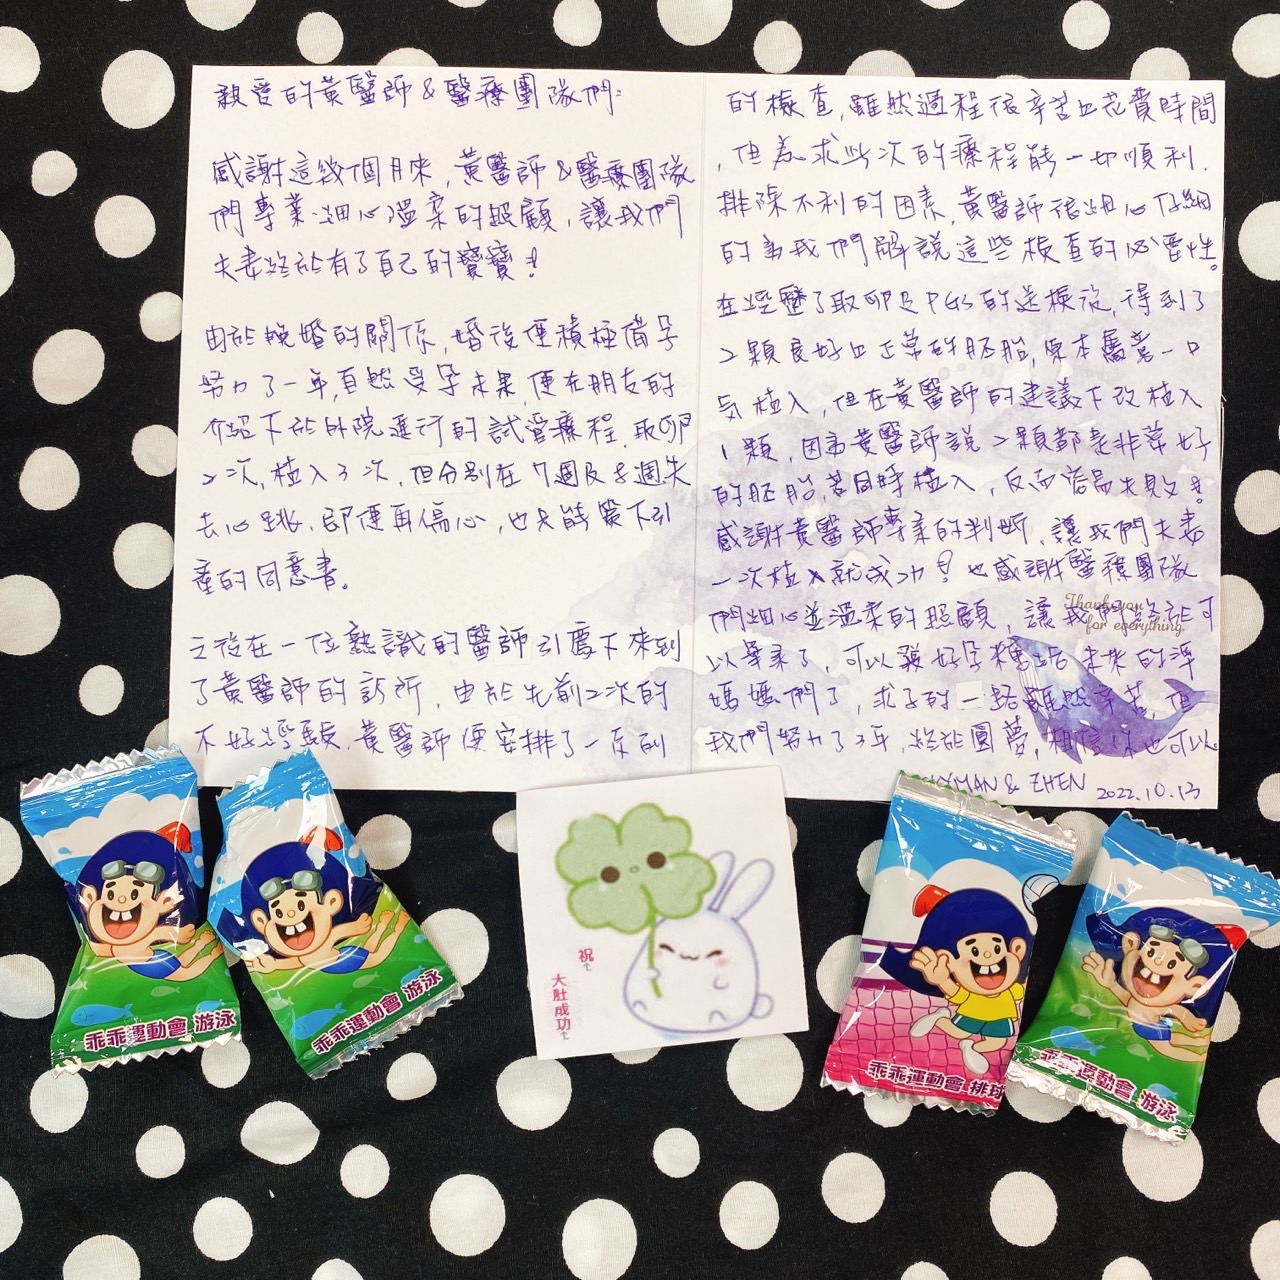 親愛的黃醫師&醫療團隊們:
感謝這幾個月來,黃醫師&醫療團隊
們專業、細心溫柔的照顧,讓我們
夫妻終於有了自己的寶寶!
由於晚婚的關係,婚後便積極備孕
努力了一年,自然受孕未果,便在朋友的
介紹下於外院進行的試管療程,取卵
2次,植入3次,但分別在7週及8週失
去心跳,即便再傷心,也只能簽下引
產的同意書。
之後在一位熟識的醫師引薦下來到
了黃醫師的診所,由於先前2次的
不好經驗,黃醫師便安排了一系列
的檢查,雖然過程很辛苦且花費時間
,但為求此次的療程能一切順利,
排除不利的因素,黃醫師很細心仔細
的為我們解說這些檢查的必要性。
在經歷了取卵及PGS的送檢後,得到了
2顆良好且正常的胚胎,原本屬意一口
氣植入,但在黃醫師的建議下改植入
1顆,因為黃醫師說2顆都是非常好
的胚胎,若同時植入,反而容易失敗!
感謝黃醫師專業的判斷,讓我們夫妻
一次植入就成功!也感謝醫療團隊
們細心並溫柔的照顧,讓我們終於可
以畢業了,可以發好孕糖給未來的準
媽媽們了,求子的一路雖然辛苦,但
我們努力了3年,終於圓夢,相信你也可以
MAN & ZHEN 2022.10.13
Thank you
for everything.
祝
大肚成功
乖乖運動會 游泳
乖乖運動會 游泳
乖乖運動會 排球
乖乖運動會 游泳